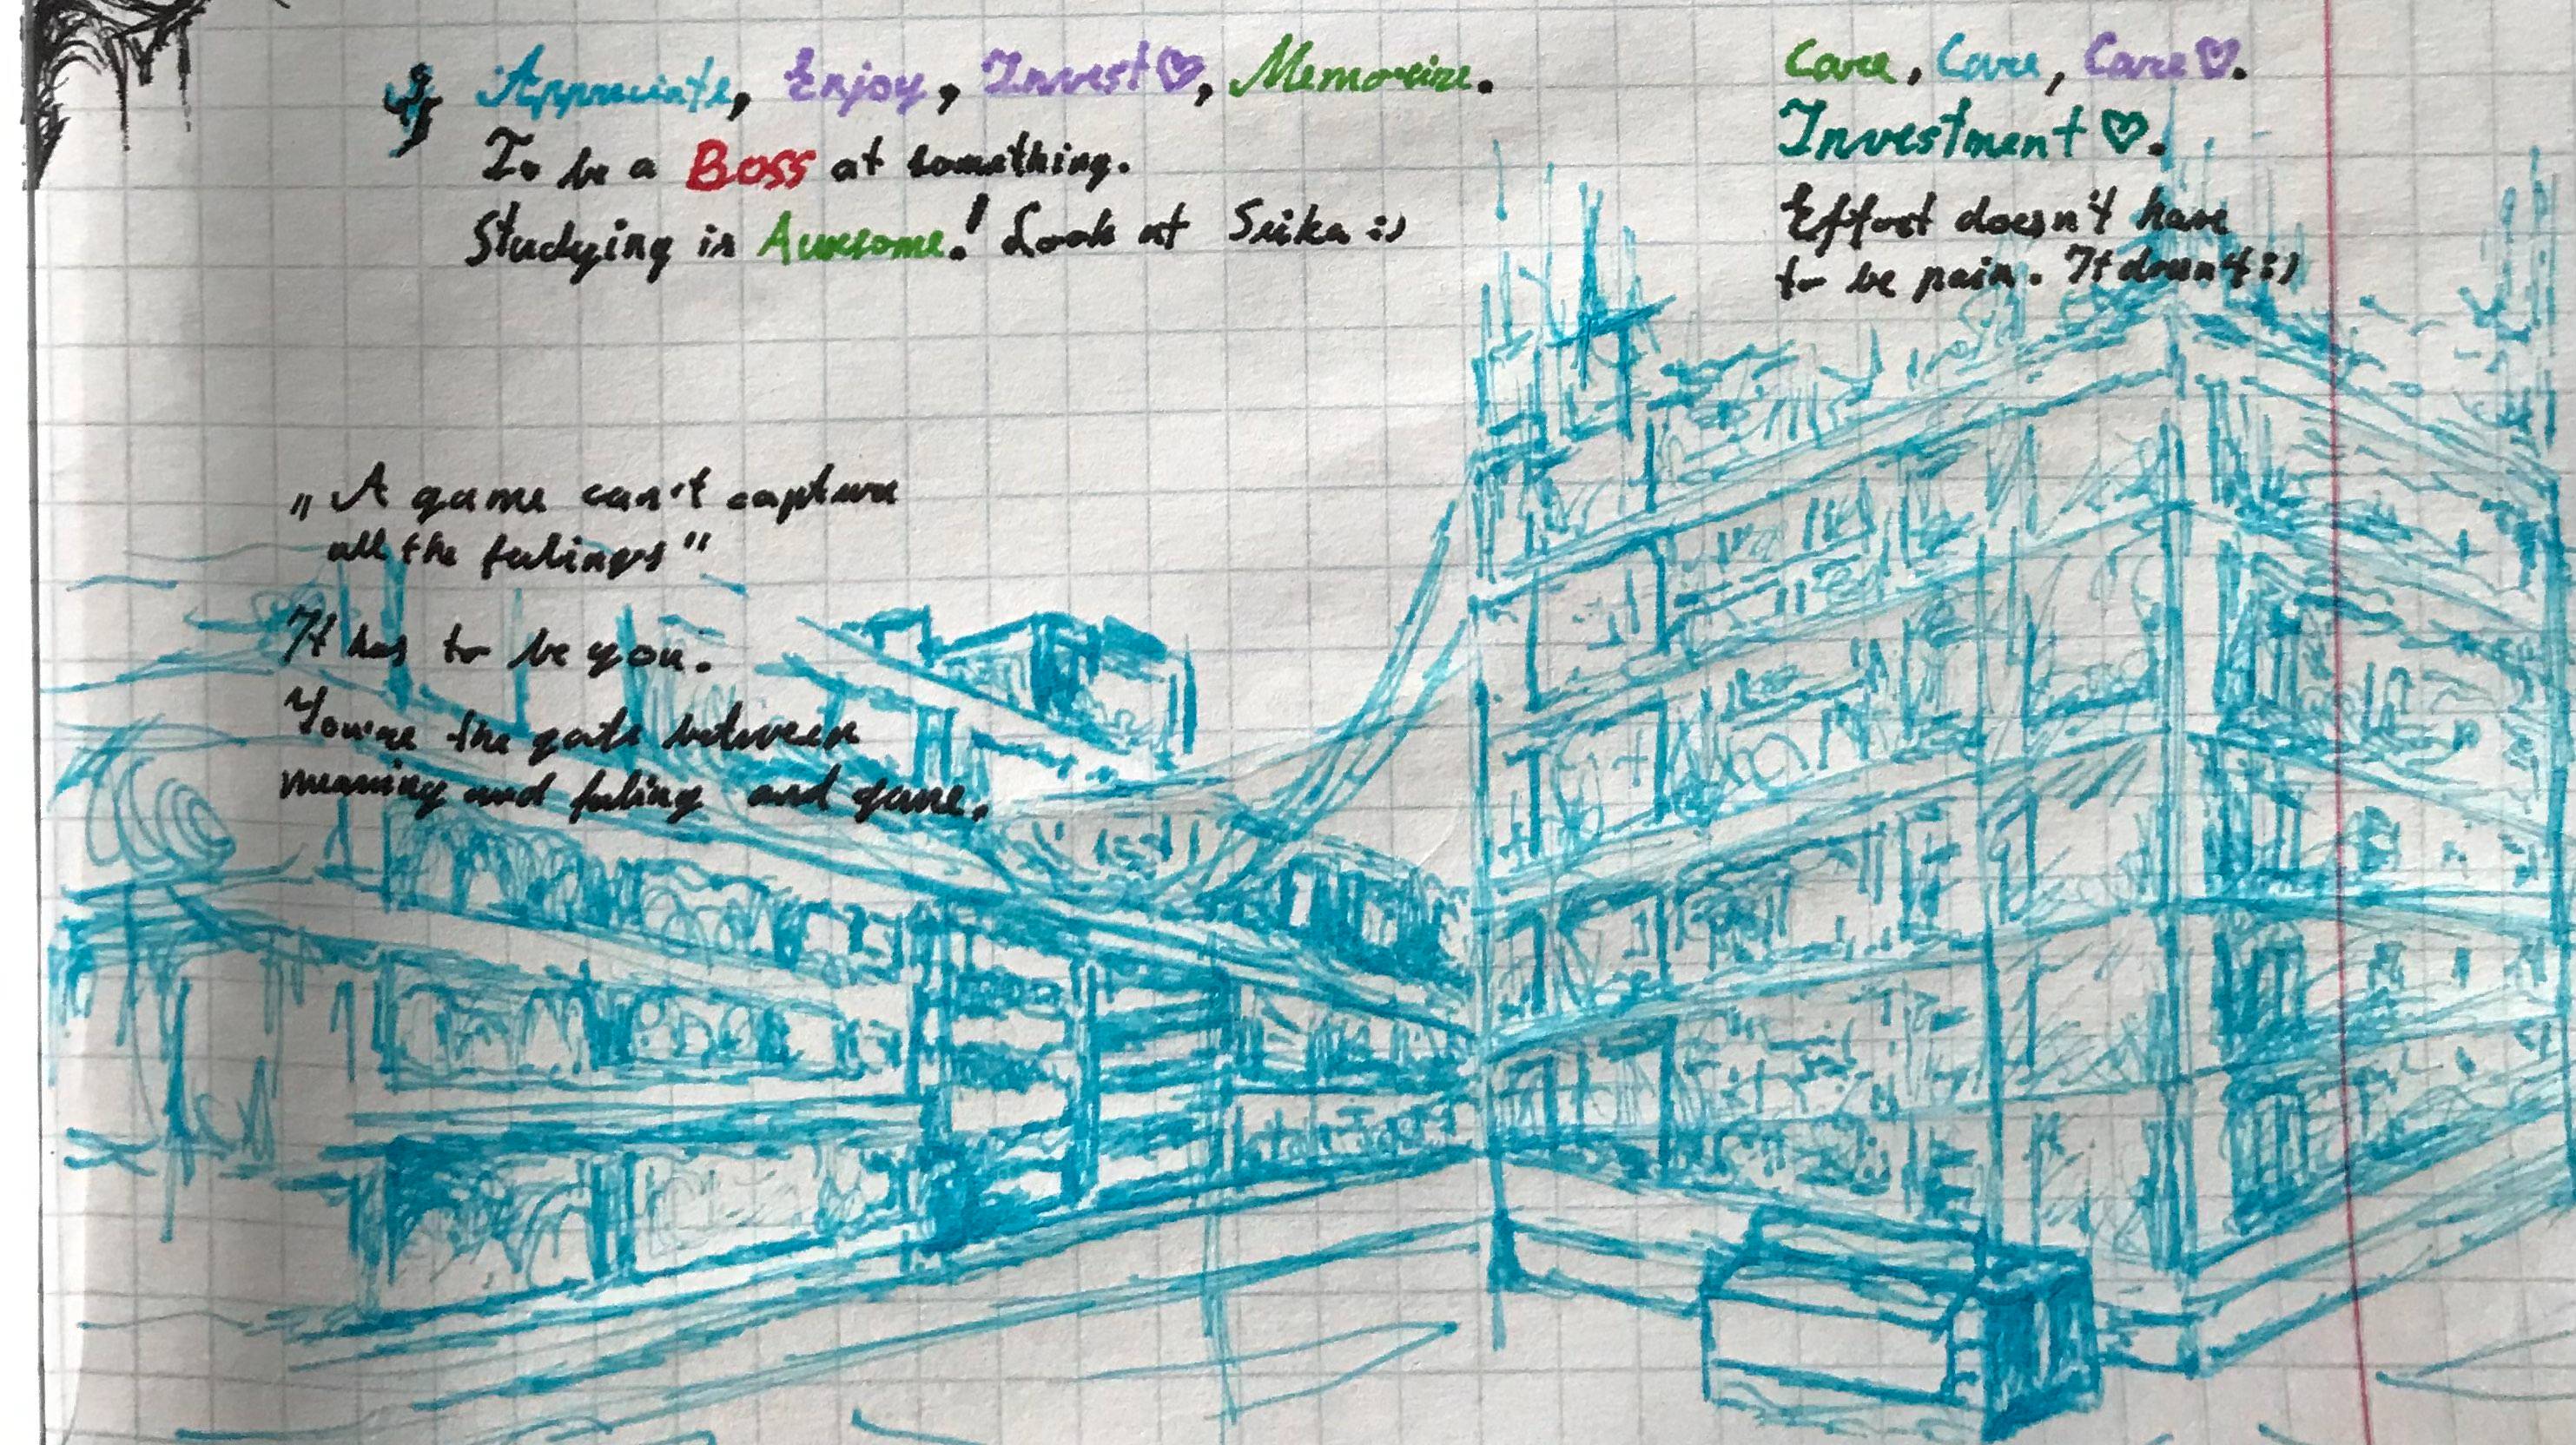 Appreciate, Enjoy, Invest♡, Memorize.
To be a Boss at something.
Studying is Awesome! Look at Seika :)
Care, Care, Care♡.
Investment ♡.
Effort doesn't have
to be pain. It doesn't :)
„A game can't capture
all the feelings"
It has to be you.
You're the gate between
meaning and feeling and game.